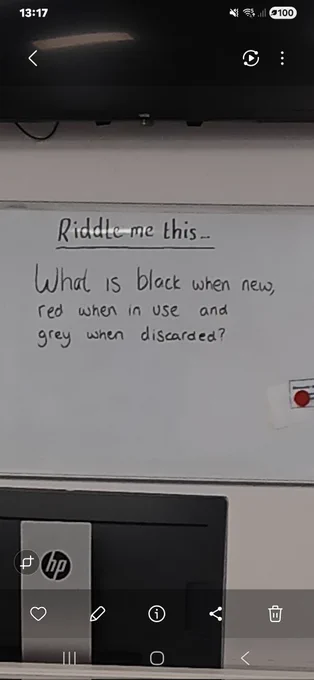 13:17
100
Riddle me this...
What is black when new,
red when in use and
grey when discarded?
hp